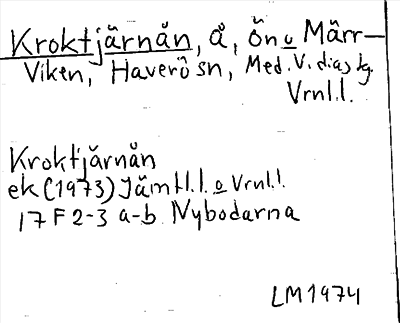 Kroktjärnån, å, ön o Märr-
Viken, Haverö sn, Med. V. dias tg.
Vrnl.l.
Kroktjärnån
ek (1973) Jämtl.l. o Vrnl.l.
17 F 2-3 a-b Nybodarna
LM 1974